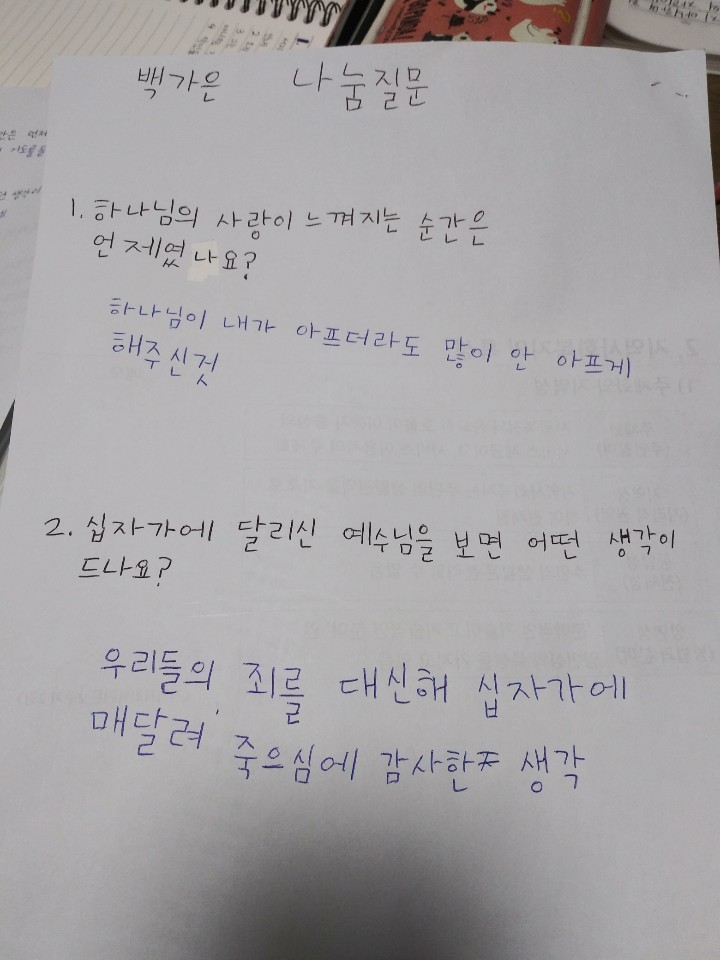 백가은 나눔질문
1. 하나님의 사랑이 느껴지는 순간은
언제였나요?
하나님이 내가 아프더라도 많이 안 아프게
해주신것
2. 십자가에 달리신 예수님을 보면 어떤 생각이
드나요?
우리들의 죄를 대신해 십자가에
매달려 죽으심에 감사한 생각